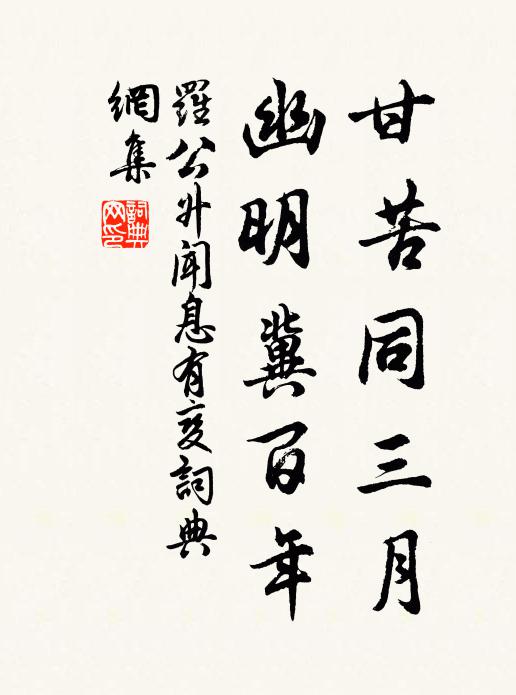 甘苦同三月
幽明冀百年
羅公升聞息有变詞典
網集
詞典網印